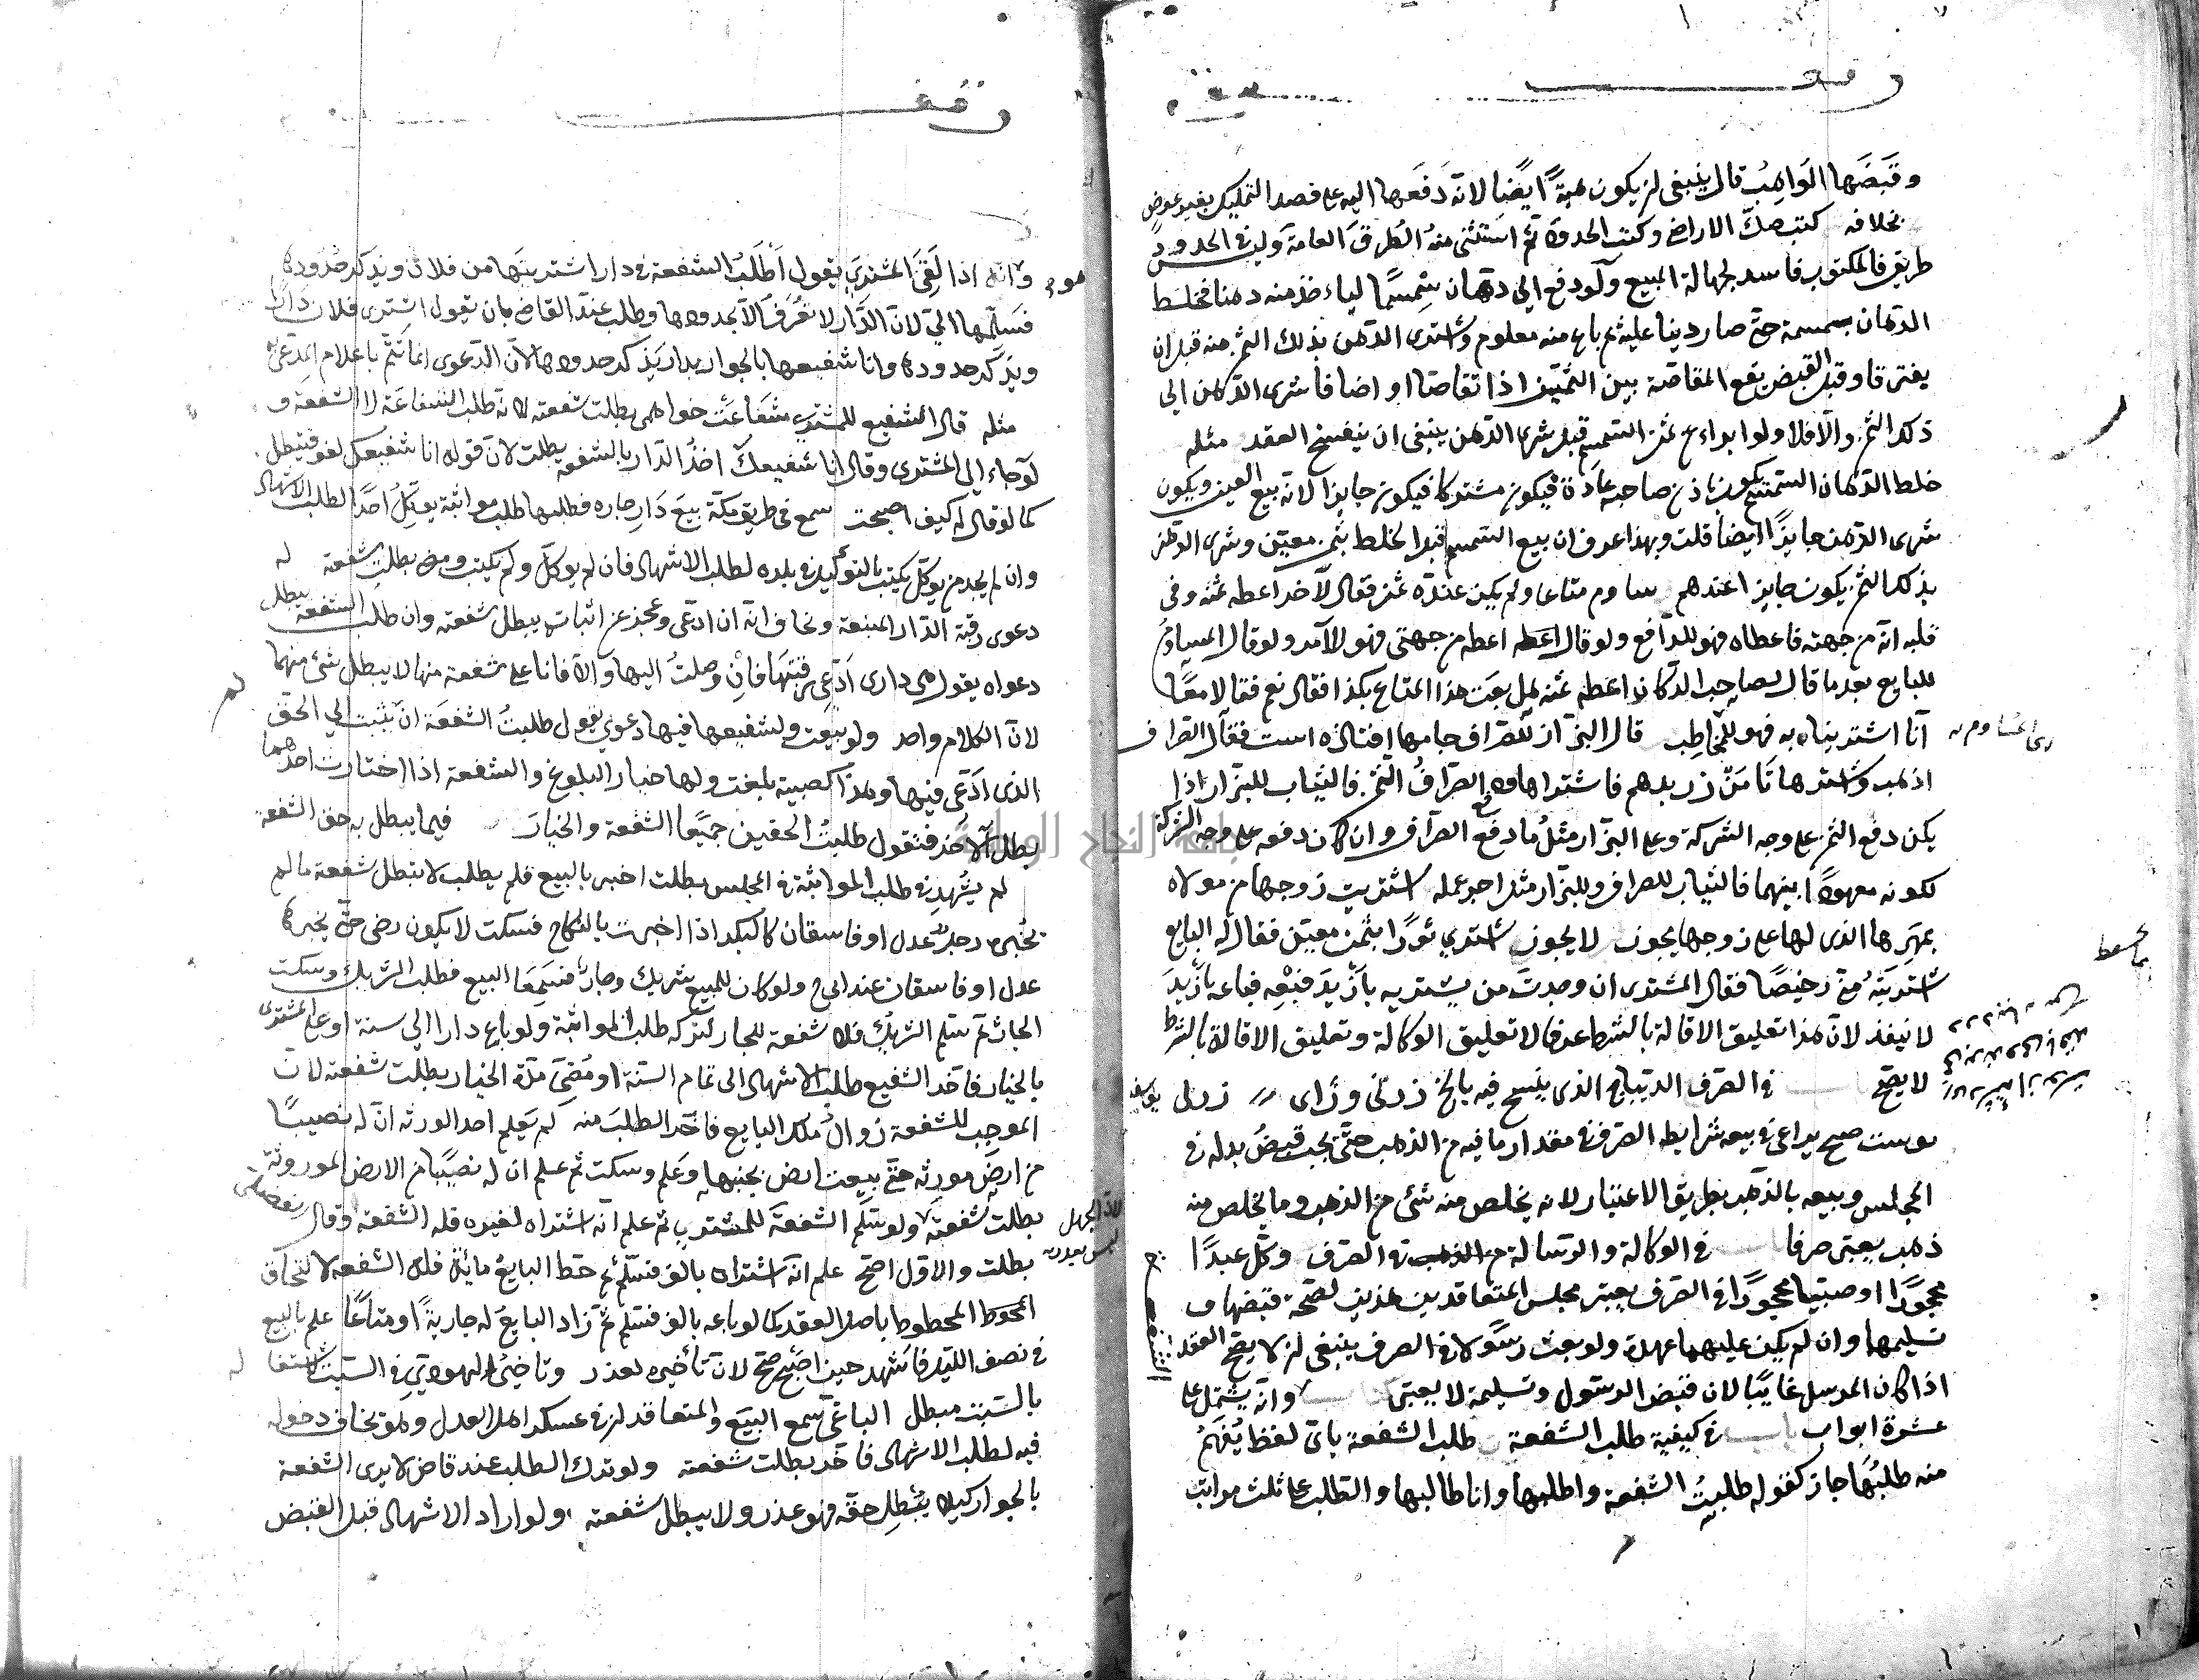 وقف
وقبضها الواهب قال ينبغي ان يكون هبة ايضا لانه دفعها اليه على قصد التمليك بغير عوض
بخلافه كتب صك الاراضي وكتب الحدود ثم استثنى منه الطرق العامة وليس في الحدود
طريق فالمكتوب فاسد لجهالة المبيع ولو دفع الى دهان سمسما لياءخذ منه دهنا فخلط
الدهان بسمسمه حتى صار دينا عليه ثم باع منه بمعلوم واشترى الدهن بذلك الثمن منه قبل ان
يفترقا وقبل القبض يقع المقاصة بين الثمنين اذا تقاصا او اضافا شرى الدهن الى
ذلك الثمن والا فلا ولو ابراءه عن ثمن السمسم قبل شرى الدهن ينبغي ان ينفسخ العقد مثله
خلط الدهان السمسم يكون باذن صاحبه عادة فيكون مشتركا فيكون جايزا لانه بيع العين ويكون
شرى الدهن جايزا ايضا قلت وبهذا عرف ان بيع السمسم قبل الخلط بثمن معين وشرى الدهن
بذلك الثمن يكون جايزا عندهم ساوم متاعا ولم يكن عنده ثمن فقال لآخر اعطه ثمنه وفي
قلبه انه من جهته فاعطاه فهو للدافع ولو قال اعطه اعطه من جهتي فهو للآمر ولو قال المساوم
للبايع بعد ما قال لصاحب الدكان اعطه ثمنه هل بعت هذا المتاع بكذا فقال نعم فقالا معا
انا اشتريناه به فهو للمخاطب قال البزاز للصراف جامها افتاده است فقال الصراف
اذهب واشترها تا من زر بدهم فاشتراها ودفع الصراف الثمن فالثياب للبزاز اذا
يكن دفع الثمن على وجه الشركة وعلى البزاز مثل ما دفع الصراف وان كان دفعه على وجه الشركة
لكونه معهودا بينهما فالثياب للصراف وللبزاز مثل اجر عمله اشتريت زوجها من مولاه
بمهرها الذي لها على زوجها يجوز لا يجوز اشترى ثورا بثمن معين فقال له البايع
اشتريته مني رخيصا فقال المشتري ان وجدت من يشتريه بازيد فبعه فباعه بازيد
لا ينفذ لان هذا تعليق الاقالة بالشرط عرفا لا تعليق الوكالة وتعليق الاقالة بالشرط
لا يصح في الصرف الديباج الذي ينسج فيه بالخ زدني وزاى زدنى
بوست صح يراعى في بيعه شرايط الصرف في مقدار ما فيه من الذهب حتى يجب قبض بدله في
المجلس وبيعه بالذهب بطريق الاعتبار لانه يخلص منه شئ من الذهب وما يخلص منه
ذهب يعتبر صرفا في الوكالة والرسالة في الصرف وكل عبدا
محجورا او صبيا محجورا في الصرف يعتبر مجلس المتعاقدين هذين لصحة قبضهما و
تسليمهما وان لم يكن عليهما عهدة ولو بعث رسولا في الصرف ينبغي ان لا يصح العقد
اذا كان المرسل غايبا لان قبض الرسول وتسليمه لا يعتبر وانه يشتمل على
عشرة ابواب باب في كيفية طلب الشفعة طلب الشفعة باى لفظ يفهم
منه طلبها جاز كقوله طلبت الشفعة واطلبها وانا طالبها والطلب على ثلث مراتب
الشفعة
وقف
وانه اذا لقى المشترى يقول اطلب الشفعة في دار اشتريتها من فلان ويذكر حدودها
فسلمها الى لان الدار لا تعرف الا بحدودها وطلب عند القاضي بان يقول اشترى فلان دارا
ويذكر حدودها وانا شفيعها بالجوار بدار يذكر حدودها لان الدعوى انما تتم باعلام المدعى
مثله قال الشفيع للمشترى شفاعت خواهم بطلت شفعته لانه طلب الشفاعة لا الشفعة و
لو جاء الى المشترى وقال انا شفيعك اخذ الدار بالشفعة بطلت لان قوله انا شفيعك لغو فتبطل
كما لو قال له كيف اصبحت سمع في طريق مكة بيع دار جاره فطلبها طلب مواثبة يوكل احدا لطلب الاشهاد
وان لم يجد من يوكل يكتب بالتوكيل في بلده لطلب الاشهاد فان لم يوكل ولم يكتب ومضى بطلت شفعته له
دعوى رقبة الدار المبيعة ويخاف انه ان ادعى وعجز عن اثباته يبطل شفعته وان طلب الشفعة يبطل
دعواه يقول هي دارى ادعى رقبتها فان وصلت اليها والا فانا على شفعة منها لا يبطل شئ منهما
لان الكلام واحد ولو بيعت ولشفيعها فيها دعوى يقول طلبت الشفعة ان يثبت لي الحق
الذي ادعى فيها وهذا كصبية بلغت ولها خيار البلوغ والشفعة اذا اختارت احدهما
بطل الآخر فتقول طلبت الحقين جميعا الشفعة والخيار فيما يبطل به حق الشفعة
لم يشهد في طلب المواثبة في المجلس بطلت اخبر بالبيع فلم يطلب لا تبطل شفعته ما لم
يخبره رجل عدل او فاسقان كالبكر اذا اخبرت بالنكاح فسكت لا يكون رضى حتى يخبرها
عدل او فاسقان عند ابى ح ولو كان للمبيع شريك وجار فسمعا البيع فطلب الشريك وسكت
الجار ثم سلم الشريك فلا شفعة للجار لتركه طلب المواثبة ولو باع دارا الى سنة او على المشترى
بالخيار فاخر الشفيع طلب الاشهاد الى تمام السنة او مضى مدة الخيار بطلت شفعته لان
الموجب للشفعة زوال ملك البايع فاخر الطلب منه لم يعلم احد الورثه ان له نصيبا
من ارض مورثه حتى بيعت ارض بجنبها وعلم وسكت ثم علم ان له نصيبا من الارض الموروثة
بطلت شفعته ولو سلم الشفعة للمشترى ثم علم انه اشتراه لغيره فله الشفعة وقال
بطلت والاول اصح علم انه اشتراه بالف فسلم ثم حط البايع مائة فله الشفعة لالتحاق
المحطوط باصل العقد كما لو باعه بالف فسلم ثم زاد البايع له جارية او متاعا علم بالبيع
في نصف الليل فاشهد حين اصبح صح لان تأخيره لعذر وتاخير اليهودى في السبت
بالسبت مبطل الباغى سمع البيع والمتعاقدان في عسكر اهل العدل وهو يخاف دخوله
فيه لطلب الاشهاد فاخر بطلت شفعته ولو ترك الطلب عند قاض لا يرى الشفعة
بالجوار كيلا يبطل حقه فهو عذر ولا يبطل شفعته ولو اراد الاشهاد قبل القبض